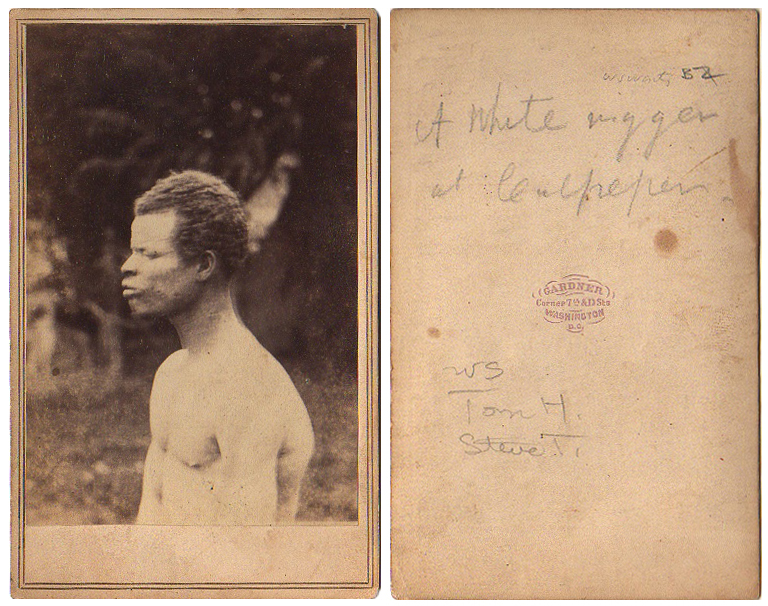 52
A White nigger
at Culpeper.
GARDNER
Corner 7th & D Sts
WASHINGTON
D.C.
WS
Tom H.
Steve T.